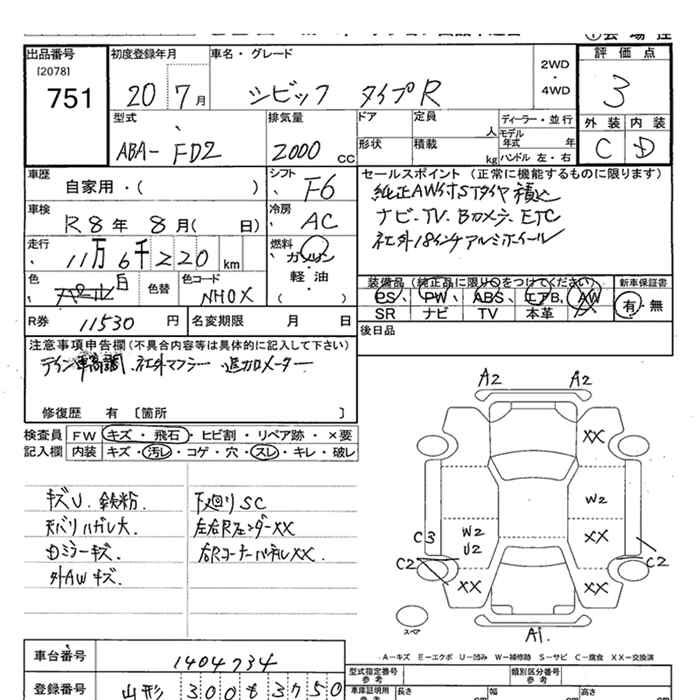 出品番号
[2078]
751
初度登録年月
20 7月
車名・グレード
シビック タイプR
2WD
・
4WD
評価点
3
外装 内装
C D
型式
ABA- FD2
排気量
2000 CC
ドア
形状
定員
人
積載
kg
ディーラー・並行
モデル
年式 年
ハンドル 左・右
車歴
自家用・( )
シフト
F6
セールスポイント (正常に機能するものに限ります)
純正AW付STタイヤ積込
ナビ・TV.Bカメラ ETC
社外18インチアルミホイール
車検
R8年 8月( 日)
冷房
AC
走行
11万6千220km
燃料
ガソリン
・
軽・油
( )
色
色替
色コード
NHOX
装備品 (純正品に限り○をつけてください)
PS、PW、ABS、エアB、AW
SR ナビ TV 本革
新車保証書
有・無
R券 11530 円
名変期限 月 日
後日品
注意事項申告欄 (不具合内容等は具体的に記入して下さい)
テイン車高調.社外マフラー 追加メーター
修復歴 有 〔箇所 〕
検査員 FW キズ・飛石・ヒビ割・リペア跡・×要
記入欄 内装 キズ・汚レ・コゲ・穴・スレ・キレ・破レ
キズU.鉄粉.
天バリハガレ大.
Dミラーキズ.
外AWキズ.
下廻りSC
左右RフェンダーXX
右RコーナーパネルXX.
A2 A2
XX
W2
C3 W2 XX
U2
C2 C2
XX XX
スペア
A1.
A-キズ E-エクボ U-凹み W-補修跡 S-サビ C-腐食 XX-交換済
車台番号 1404734
登録番号 山形 300 も 3750
型式指定番号
参考
類別区分番号
参考
車庫証明用
長さ cm
幅 cm
高さ cm